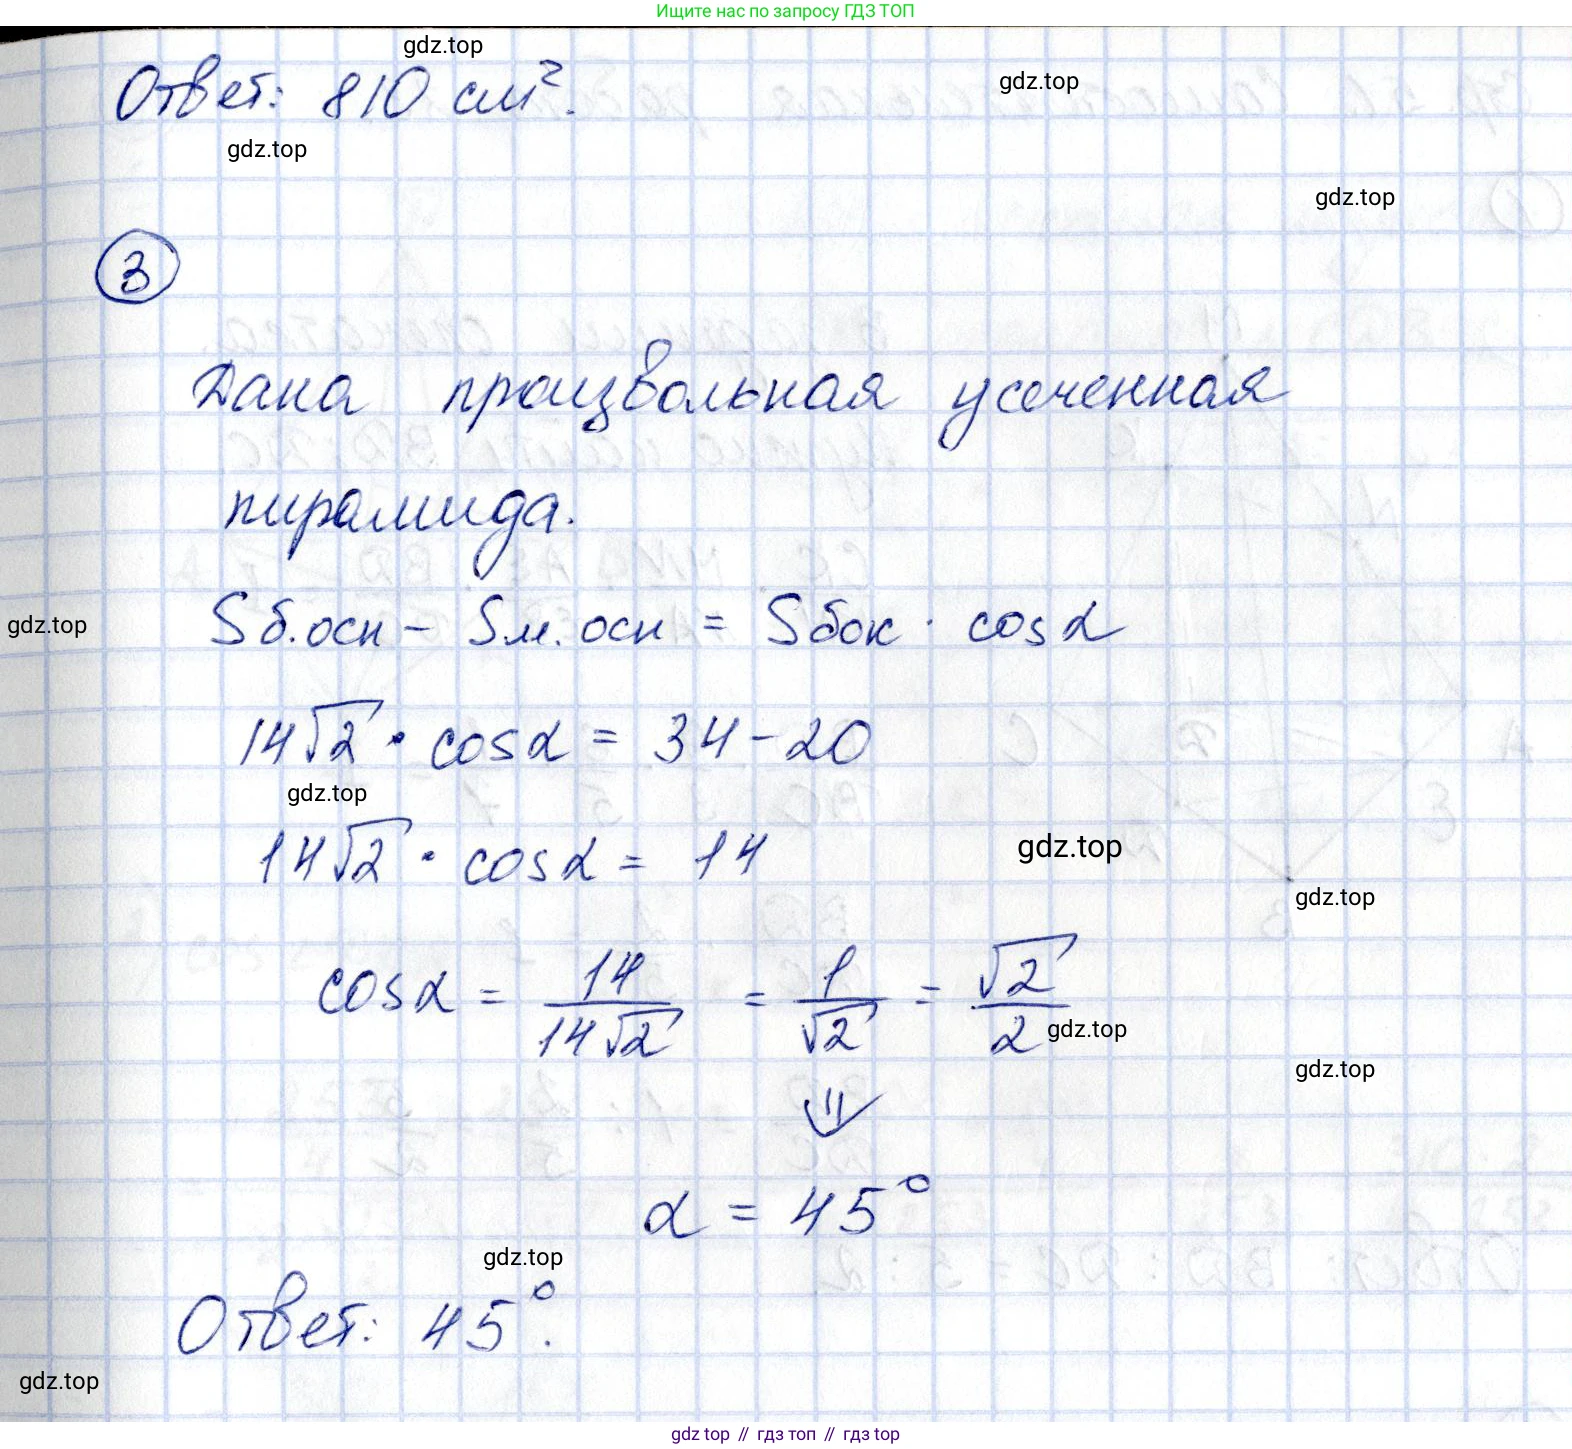 Ищите нас по запросу ГДЗ ТОП
gdz.top
Ответ: 810 см².
gdz.top
gdz.top
gdz.top
3
Дана произвольная усеченная
пирамида.
Sб.осн - Sм.осн = Sбок · cosα
gdz.top
14√2 · cosα = 34 - 20
gdz.top
14√2 · cosα = 14
gdz.top
gdz.top
cosα = 14/14√2 = 1/√2 = √2/2
gdz.top
gdz.top
⇓
α = 45°
gdz.top
Ответ: 45°.
gdz.top
gdz top // гдз топ // гдз top